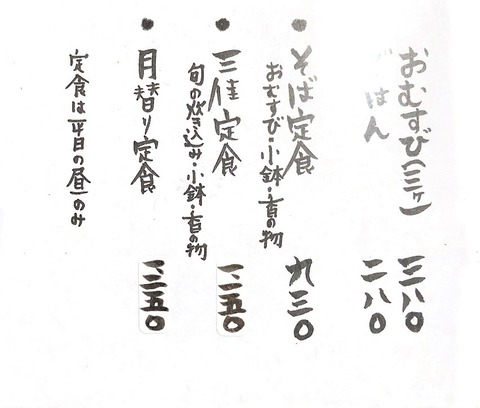 おむすび(三ヶ) 三八〇
ごはん 二八〇
● そば定食 九三〇
おむすび・小鉢・香の物
● 三佳定食 一、一五〇
旬の炊き込み・小鉢・香の物
● 月替り定食 一、二五〇
定食は平日の昼のみ